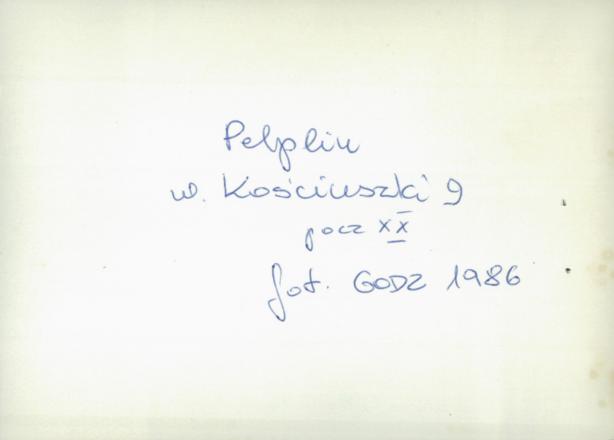 Pelplin
ul. Kościuszki 9
pocz XX
fot. GODZ 1986